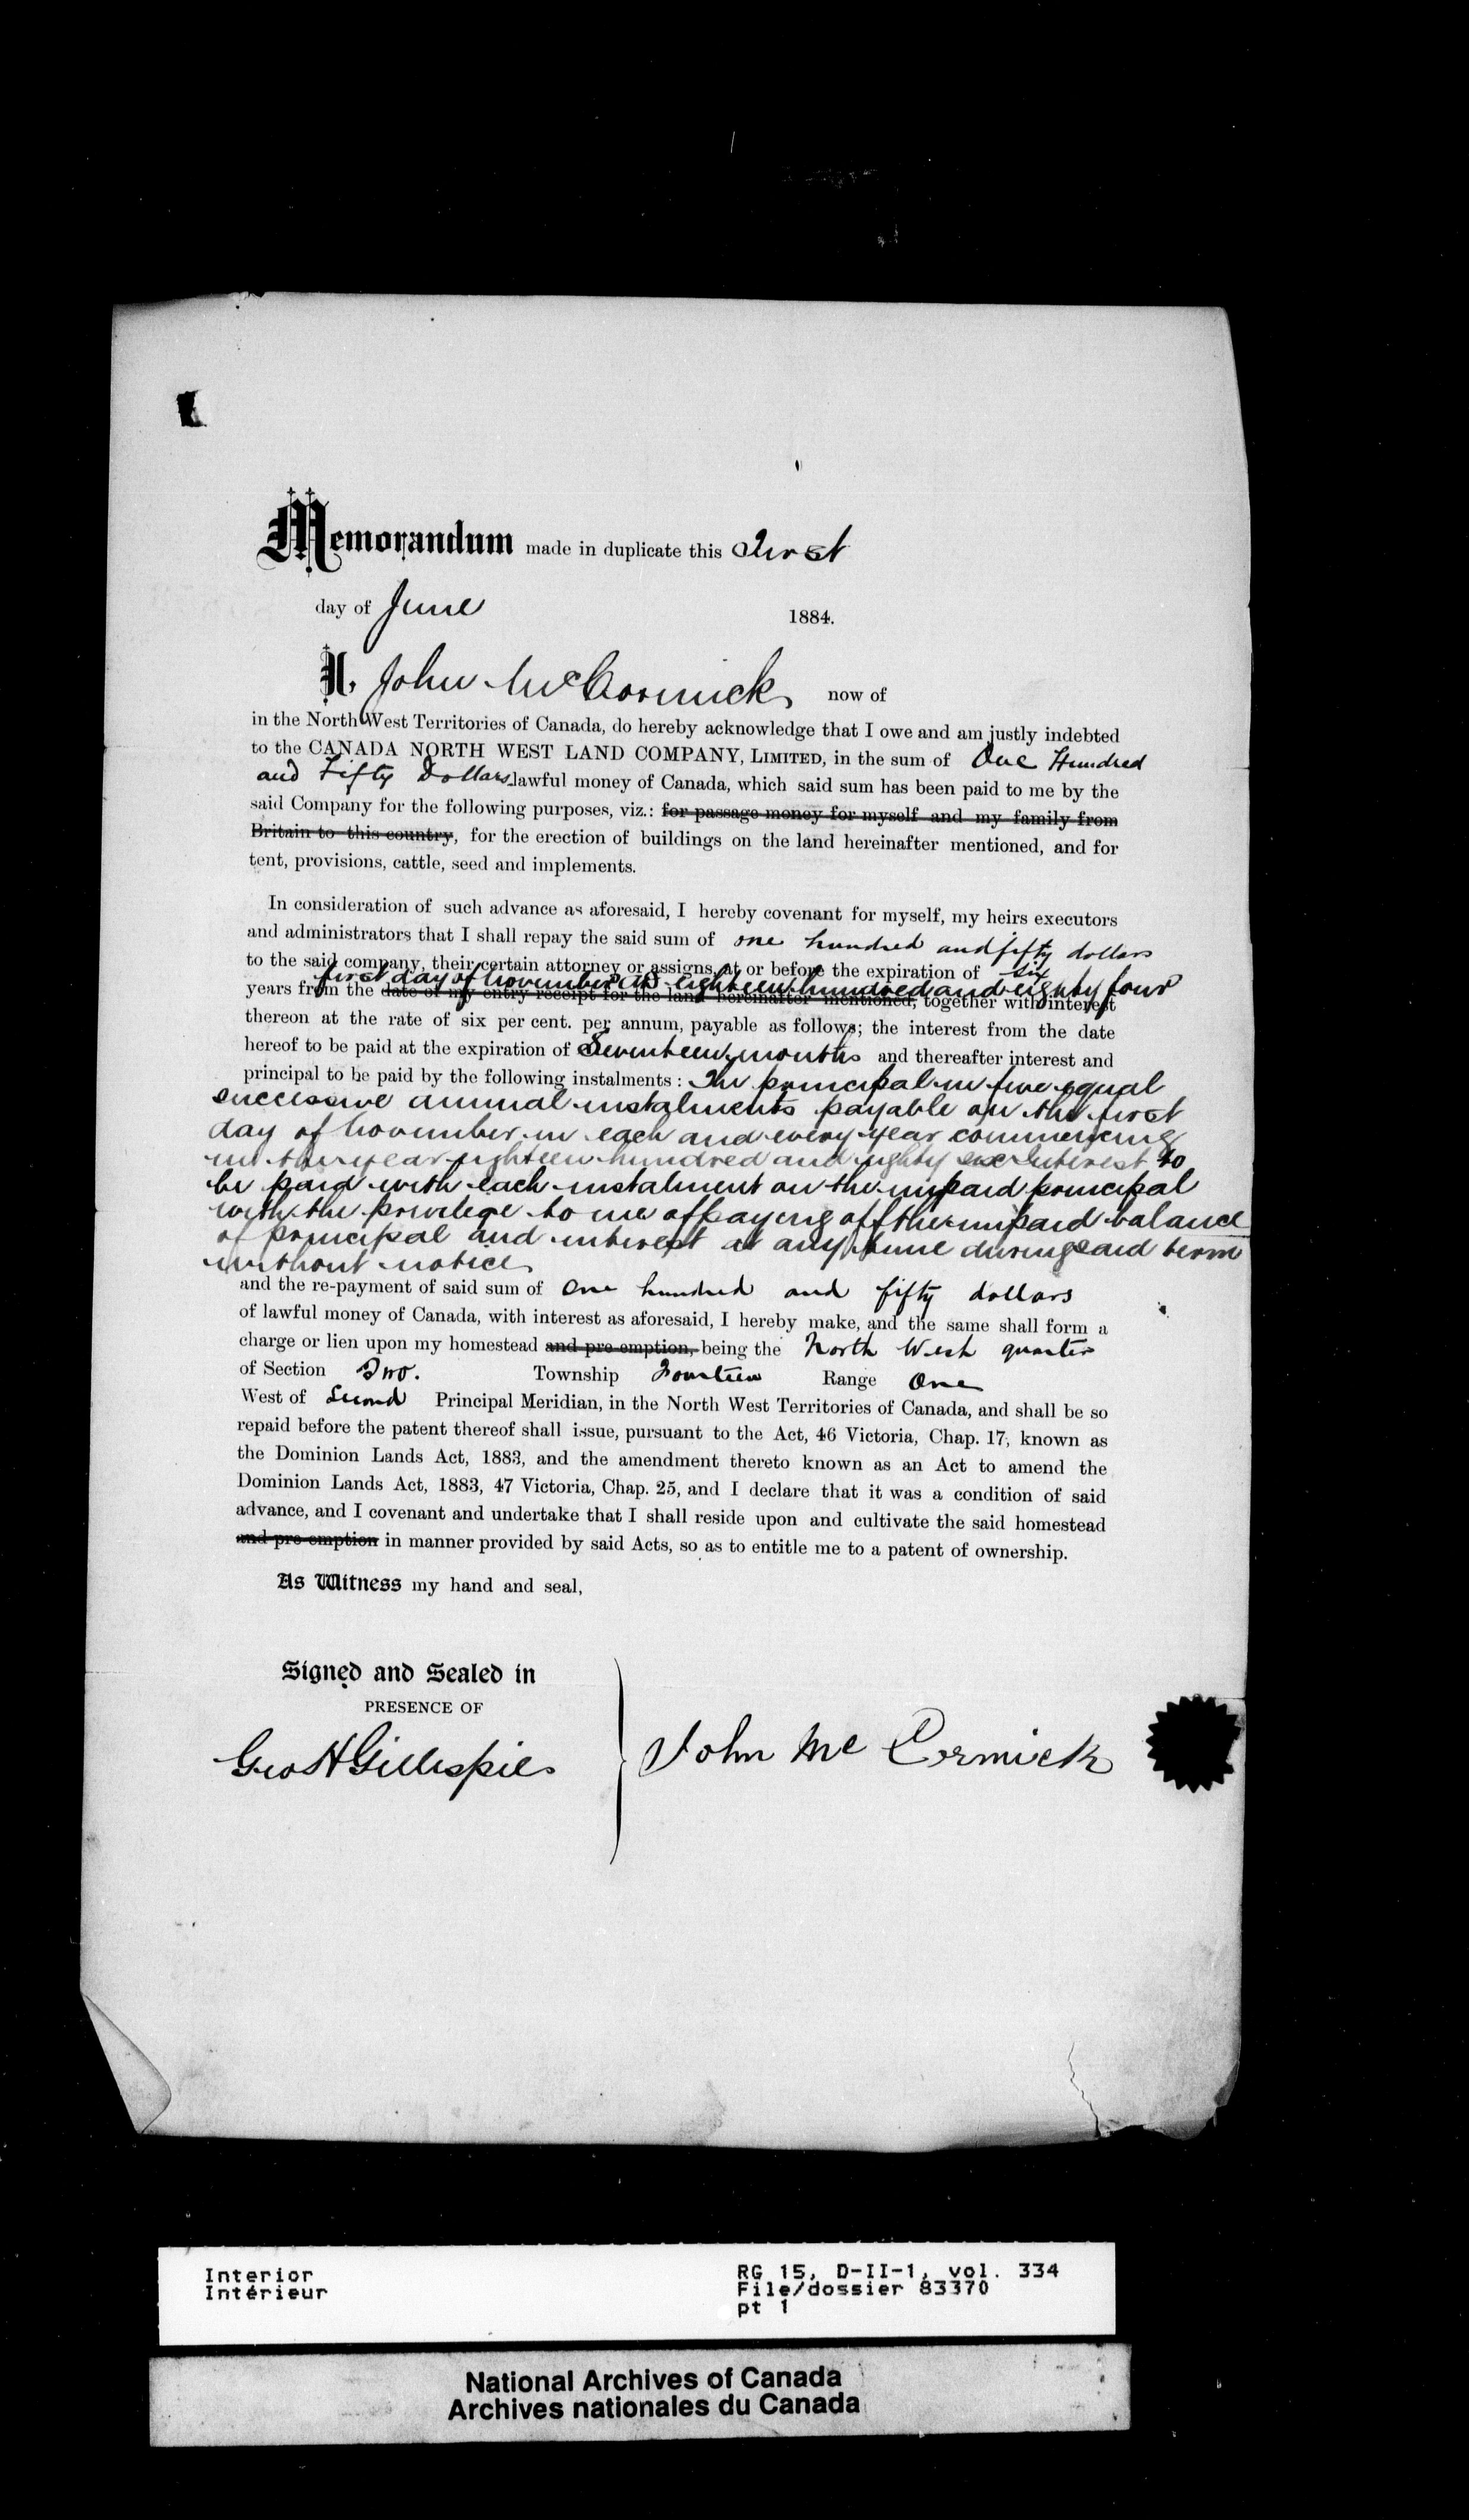 Memorandum made in duplicate this First
day of June 1884.
I, John McCormick now of
in the North West Territories of Canada, do hereby acknowledge that I owe and am justly indebted
to the CANADA NORTH WEST LAND COMPANY, LIMITED, in the sum of One Hundred
and Fifty Dollars lawful money of Canada, which said sum has been paid to me by the
said Company for the following purposes, viz.: for passage money for myself and my family from
Britain to this country, for the erection of buildings on the land hereinafter mentioned, and for
tent, provisions, cattle, seed and implements.
In consideration of such advance as aforesaid, I hereby covenant for myself, my heirs executors
and administrators that I shall repay the said sum of one hundred and fifty dollars
to the said company, their certain attorney or assigns, at or before the expiration of six
first day of November AD eighteen hundred and eighty four
years from the date of my entry receipt for the land hereinafter mentioned, together with interest
thereon at the rate of six per cent. per annum, payable as follows; the interest from the date
hereof to be paid at the expiration of Seventeen months and thereafter interest and
principal to be paid by the following instalments: The principal in five equal
successive annual instalments payable on the first
day of November in each and every year commencing
in the year eighteen hundred and eighty six Interest to
be paid with each instalment on the unpaid principal
with the privilege to me of paying off the unpaid balance
of principal and interest at any time during said term
without notice
and the re-payment of said sum of One hundred and fifty dollars
of lawful money of Canada, with interest as aforesaid, I hereby make, and the same shall form a
charge or lien upon my homestead and pre-emption, being the North West quarter
of Section Two. Township Fourteen Range One
West of Second Principal Meridian, in the North West Territories of Canada, and shall be so
repaid before the patent thereof shall issue, pursuant to the Act, 46 Victoria, Chap. 17, known as
the Dominion Lands Act, 1883, and the amendment thereto known as an Act to amend the
Dominion Lands Act, 1883, 47 Victoria, Chap. 25, and I declare that it was a condition of said
advance, and I covenant and undertake that I shall reside upon and cultivate the said homestead
and pre-emption in manner provided by said Acts, so as to entitle me to a patent of ownership.
As Witness my hand and seal,
Signed and Sealed in
PRESENCE OF
Geo H Gillespie
John Mc Cormick
Interior
Intérieur
RG 15, D-II-1, vol. 334
File/dossier 83370
pt 1
National Archives of Canada
Archives nationales du Canada